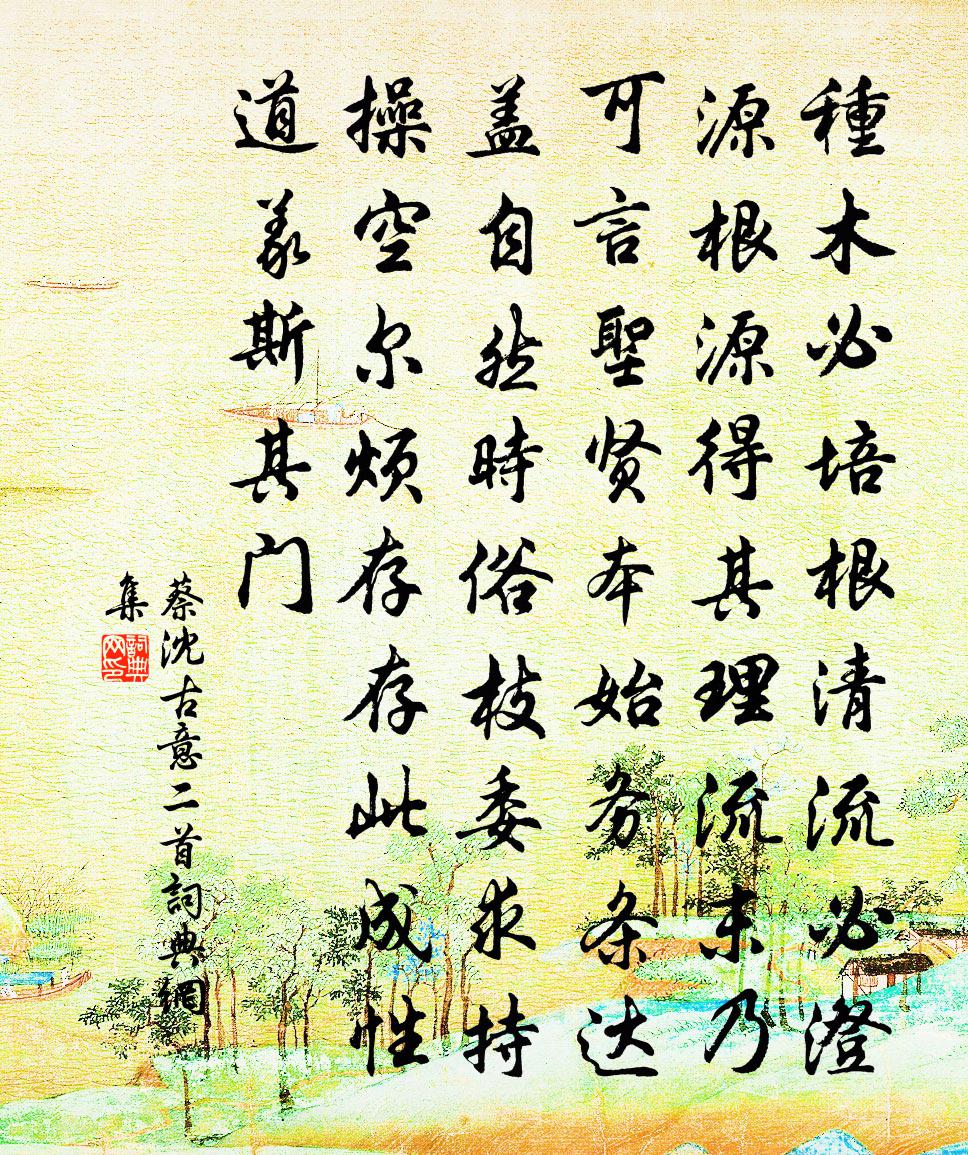 種木必培根清流必澄
源根源得其理流末乃
可言聖贤本始务条达
盖自然時俗枝委求持
操空尔烦存存此成性
道义斯其门
蔡沈古意二首詞典網
集
詞典網印